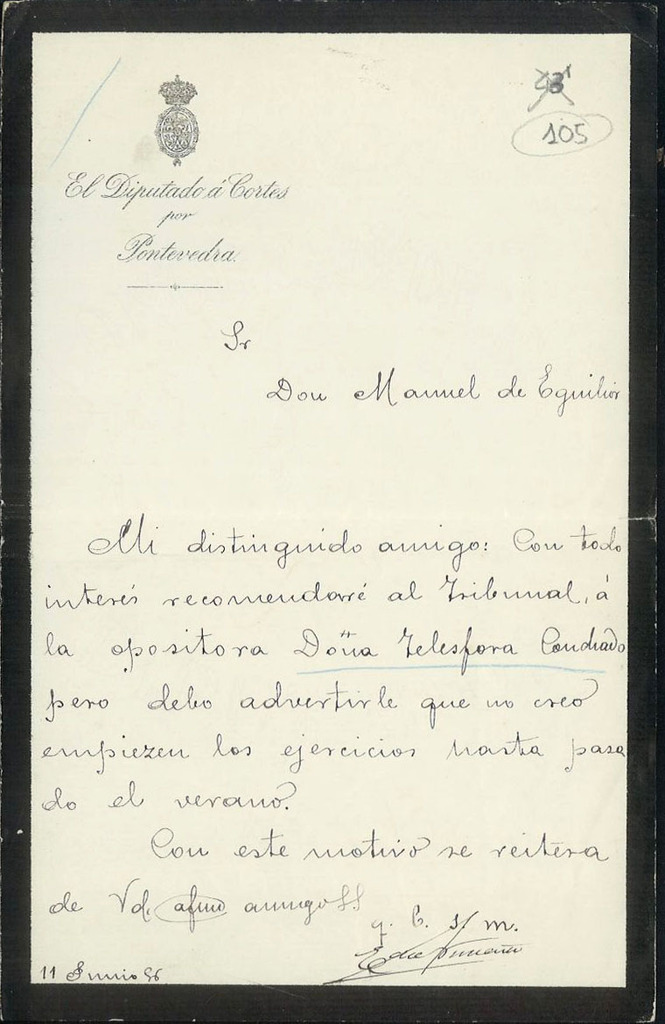 105
El Diputado á Cortes
por
Pontevedra.
Sr
Don Manuel de Eguilior
Mi distinguido amigo: Con todo
interés recomendaré al Tribunal, á
la opositora Doña Telesfora Condado
pero debo advertirle que no creo
empiezen los ejercicios hasta pasa
do el verano.
Con este motivo se reitera
de Vd. afmo amigo SS
q. b. s/ m.
11 Junio 96